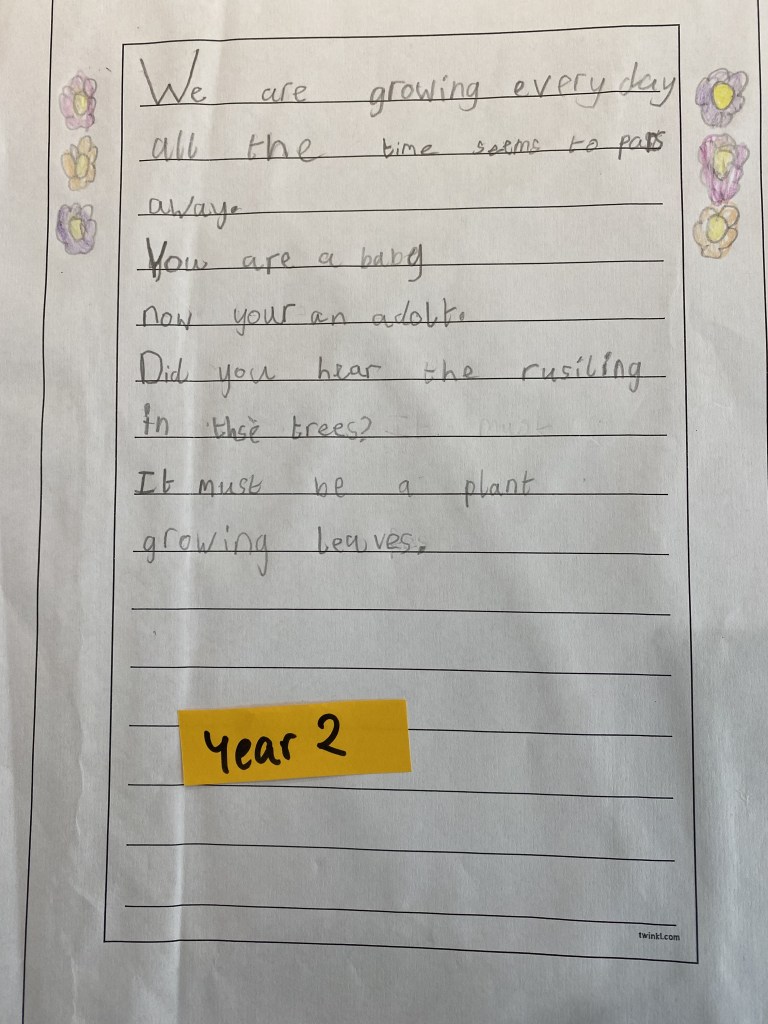 We are growing every day
all the time seems to pass
away.
You are a baby
now your an adolt.
Did you hear the rusiling
in thse trees?
It must be a plant
growing leaves.
Year 2
twinkl.com